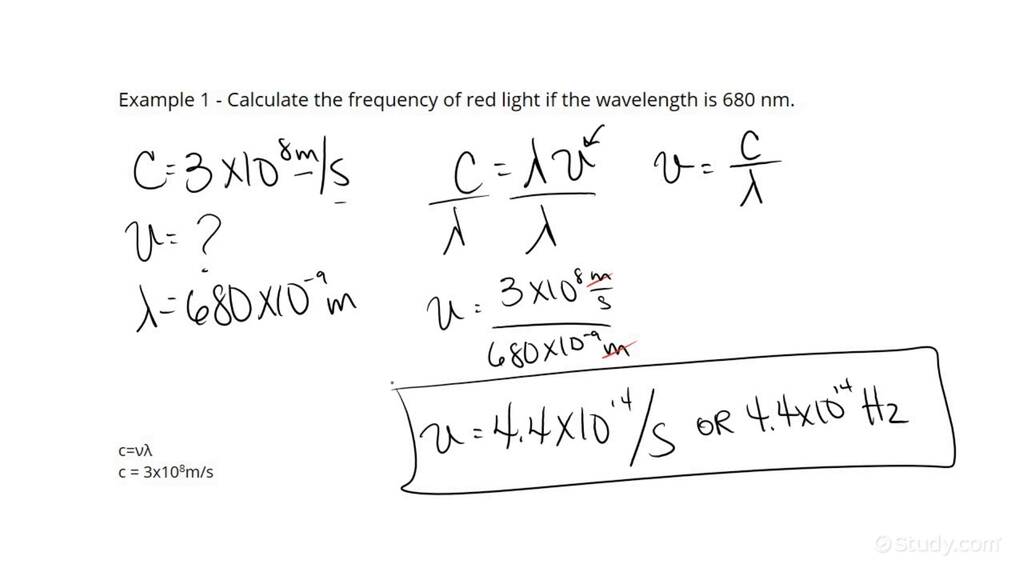 Example 1 - Calculate the frequency of red light if the wavelength is 680 nm.
C = 3 x 10⁸ m/s
ν = ?
λ = 680 x 10⁻⁹ m
C/λ = λν/λ
ν = C/λ
ν = 3 x 10⁸ m/s / 680 x 10⁻⁹ m
ν = 4.4 x 10¹⁴/s OR 4.4 x 10¹⁴ Hz
c=νλ
c = 3x10⁸m/s
Study.com